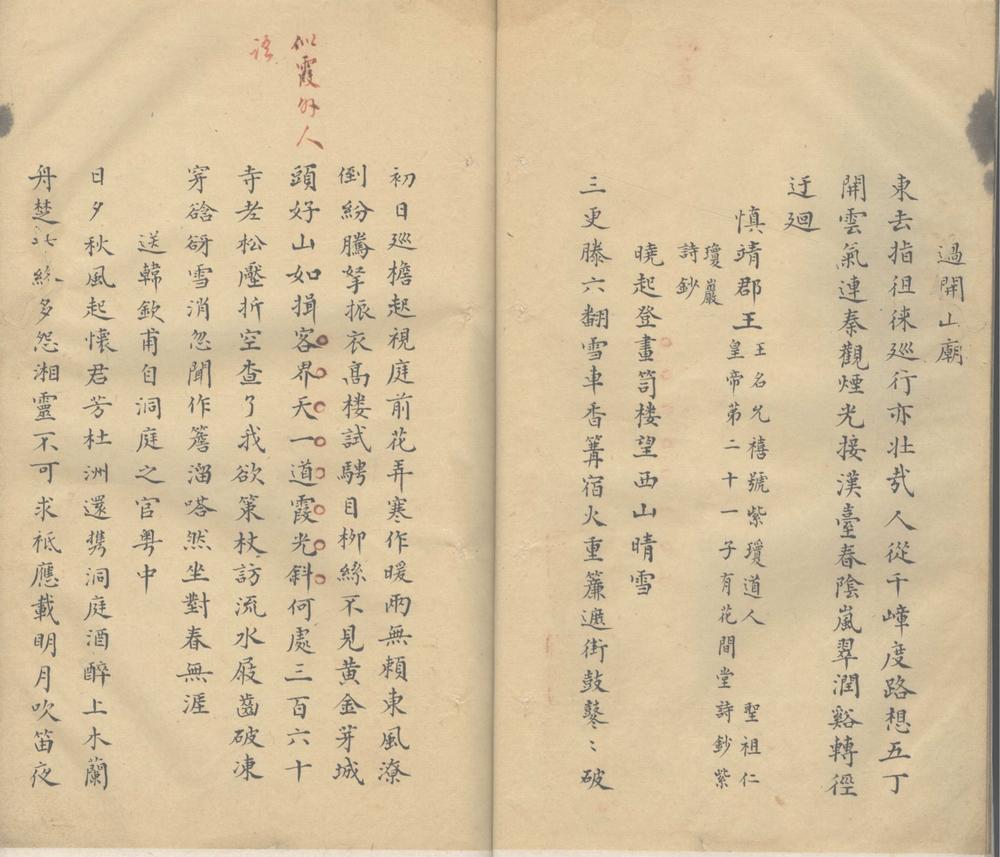 過開山廟
東去指徂徠巡行亦壯哉人從千嶂度路想五丁
開雲氣連秦觀煙光接漢臺春陰嵐翠潤谿轉徑
迂廻
慎靖郡王
王名允禧號紫瓊道人 聖祖仁
皇帝第二十一子有花間堂詩鈔紫
瓊巖
詩鈔
曉起登畫笥楼望西山晴雪
三更滕六翻雪車香篝宿火重簾遮街鼓鼕〻破
初日巡檐起視庭前花弄寒作暖兩無賴東風潦
倒紛騰拏振衣髙楼試騁目柳絲不見黄金芽城
頭好山如揖客界天一道霞光斜何處三百六十
寺老松壓折空查了我欲策杖訪流水屐齒破凍
穿谽谺雪消忽聞作簷溜嗒然坐對春無涯
送韓欽甫自洞庭之官粤中
日夕秋風起懷君芳杜洲還携洞庭酒醉上木蘭
舟楚北絲多怨湘靈不可求祗應載明月吹笛夜
似霞外人
語